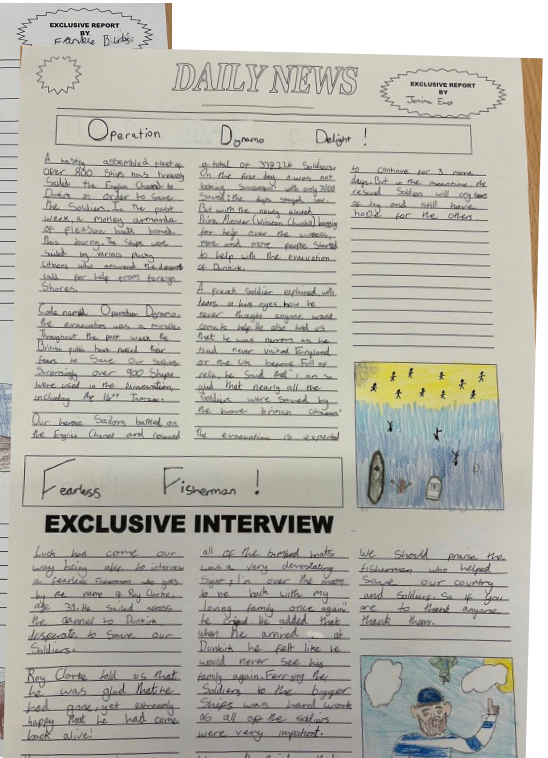 EXCLUSIVE REPORT
BY
Frankie
DAILY NEWS
EXCLUSIVE REPORT
BY
Jemima East
Operation Dynamo Delight!
A hastily assembled fleet of
over 800 Ships has
the English Channel to
in order to Save
the Soldiers. In the past
week, a motley
of pleasure boats
this journy. The Ships were
sailed by various plucky
citizens who answered the
call for help from foreign
Shores.
Code named Operation Dynamo
the evacuation was a miracle.
Throughout the past week the
British public have faced their
fears to Save Our
Surprisingly over 900 Ships
were used in the evacuation,
including the 16ft Tamzine.
Our heroic Sailors battled on
the English Chanel and rescued
a total of 338,226 Soldiers.
On the first day it was not
looking with only 7000
Saved; the days stayed low.
But with the newly elected
Prime Minister (Winston Churchill)
for help over the wireless,
more and more people Started
to help with the evacuation
of Dunkirk.
A french Soldier explained, with
tears in his eyes, how he
never thought anyone would
come to help. He also told us
that he was nervous as he
had never visited England
or the UK before. Full of
relief, he Said that "I am so
glad that nearly all the
Soldiers were saved by
the brave british citizens"
The evacuation is expected
to continue for 3 more
days. But in the meantime the
rescued Soldiers will cry tears
of joy and still have
hope for the others
Fearless Fisherman!
EXCLUSIVE INTERVIEW
Luck has come our
way being able to interview
a fearless fisherman who goes
by the name of Roy Clarke,
age 39. He Sailed across
the cannel to Dunkirk
desperate to Save our
Soldiers.
Roy Clarke told us that
he was glad that he
had gone, yet extremly
happy that he had come
back alive!
all of the bombed boats
was a very devastating
Sight; I'm over the moon
to be back with my
loving family once again".
he cried he added that
when he arrived at
Dunkirk he felt like he
would never see his
family again. Ferrying the
Soldiers to the bigger
Ships was hard work
as all of the soldiers
were very impatient.
We Should praise the
fisherman who helped
Save our country
and Soldiers. So if you
are to thank anyone,
thank them.